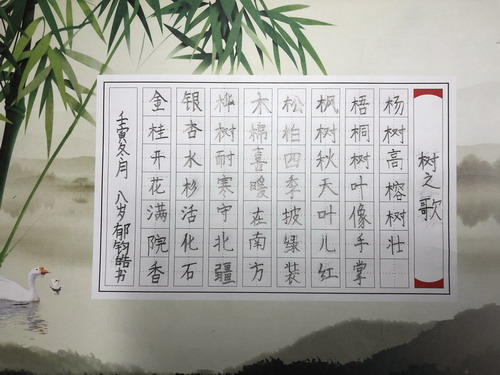 树之歌
杨树高榕树壮
梧桐树叶像手掌
枫树秋天叶儿红
松柏四季披绿装
木棉喜暖在南方
桦树耐寒守北疆
银杏水杉活化石
金桂开花满院香
壬寅冬月 八岁郁钧皓书